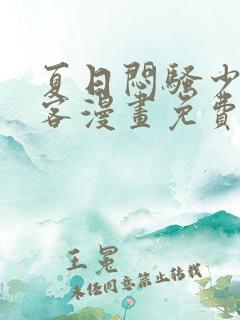 夏日悶騷少
客漫畫免費
王冕
未经同意禁止转载